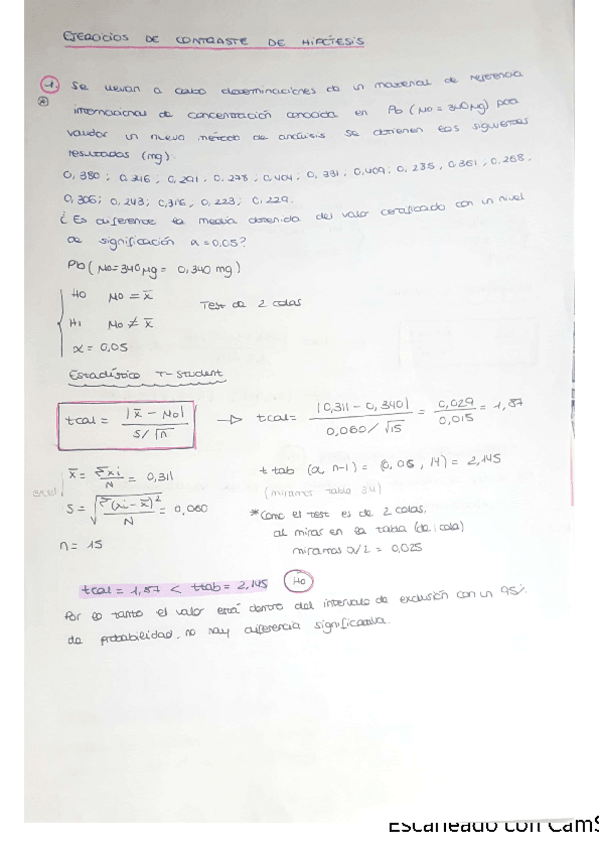 EJERCICIOS DE CONTRASTE DE HIPÓTESIS
1. Se llevan a cabo determinaciones de un material de referencia
internacional de concentración conocida en Pb (μ0 = 340μg) para
validar un nuevo método de análisis. Se obtienen los siguientes
resultados (mg)
0,380; 0,346; 0,291; 0,278; 0,404; 0,331; 0,409; 0,235; 0,361; 0,268;
0,306; 0,243; 0,316; 0,223; 0,229.
¿Es diferente la media obtenida del valor certificado con un nivel
de significación α = 0,05?
Pb (μ0 = 340μg = 0,340 mg)
H0 μ0 = x̄ Test de 2 colas
H1 μ0 ≠ x̄
α = 0,05
Estadístico T-Student
tcal = |x̄ - μ0| / s/√n → tcal = |0,311 - 0,340| / 0,060/√15 = 0,029 / 0,015 = 1,87
x̄ = Σxi / N = 0,311 t tab (α, n-1) = (0,05, 14) = 2,145
(miramos tabla 34)
s = √Σ(xi - x̄)² / N = 0,060 *Como el test es de 2 colas,
al mirar en la tabla (de 1 cola)
n = 15 miramos α/2 = 0,025
tcal = 1,87 < ttab = 2,145 H0
Por lo tanto el valor está dentro del intervalo de exclusión con un 95%
de probabilidad, no hay diferencia significativa.
Escaneado con CamS